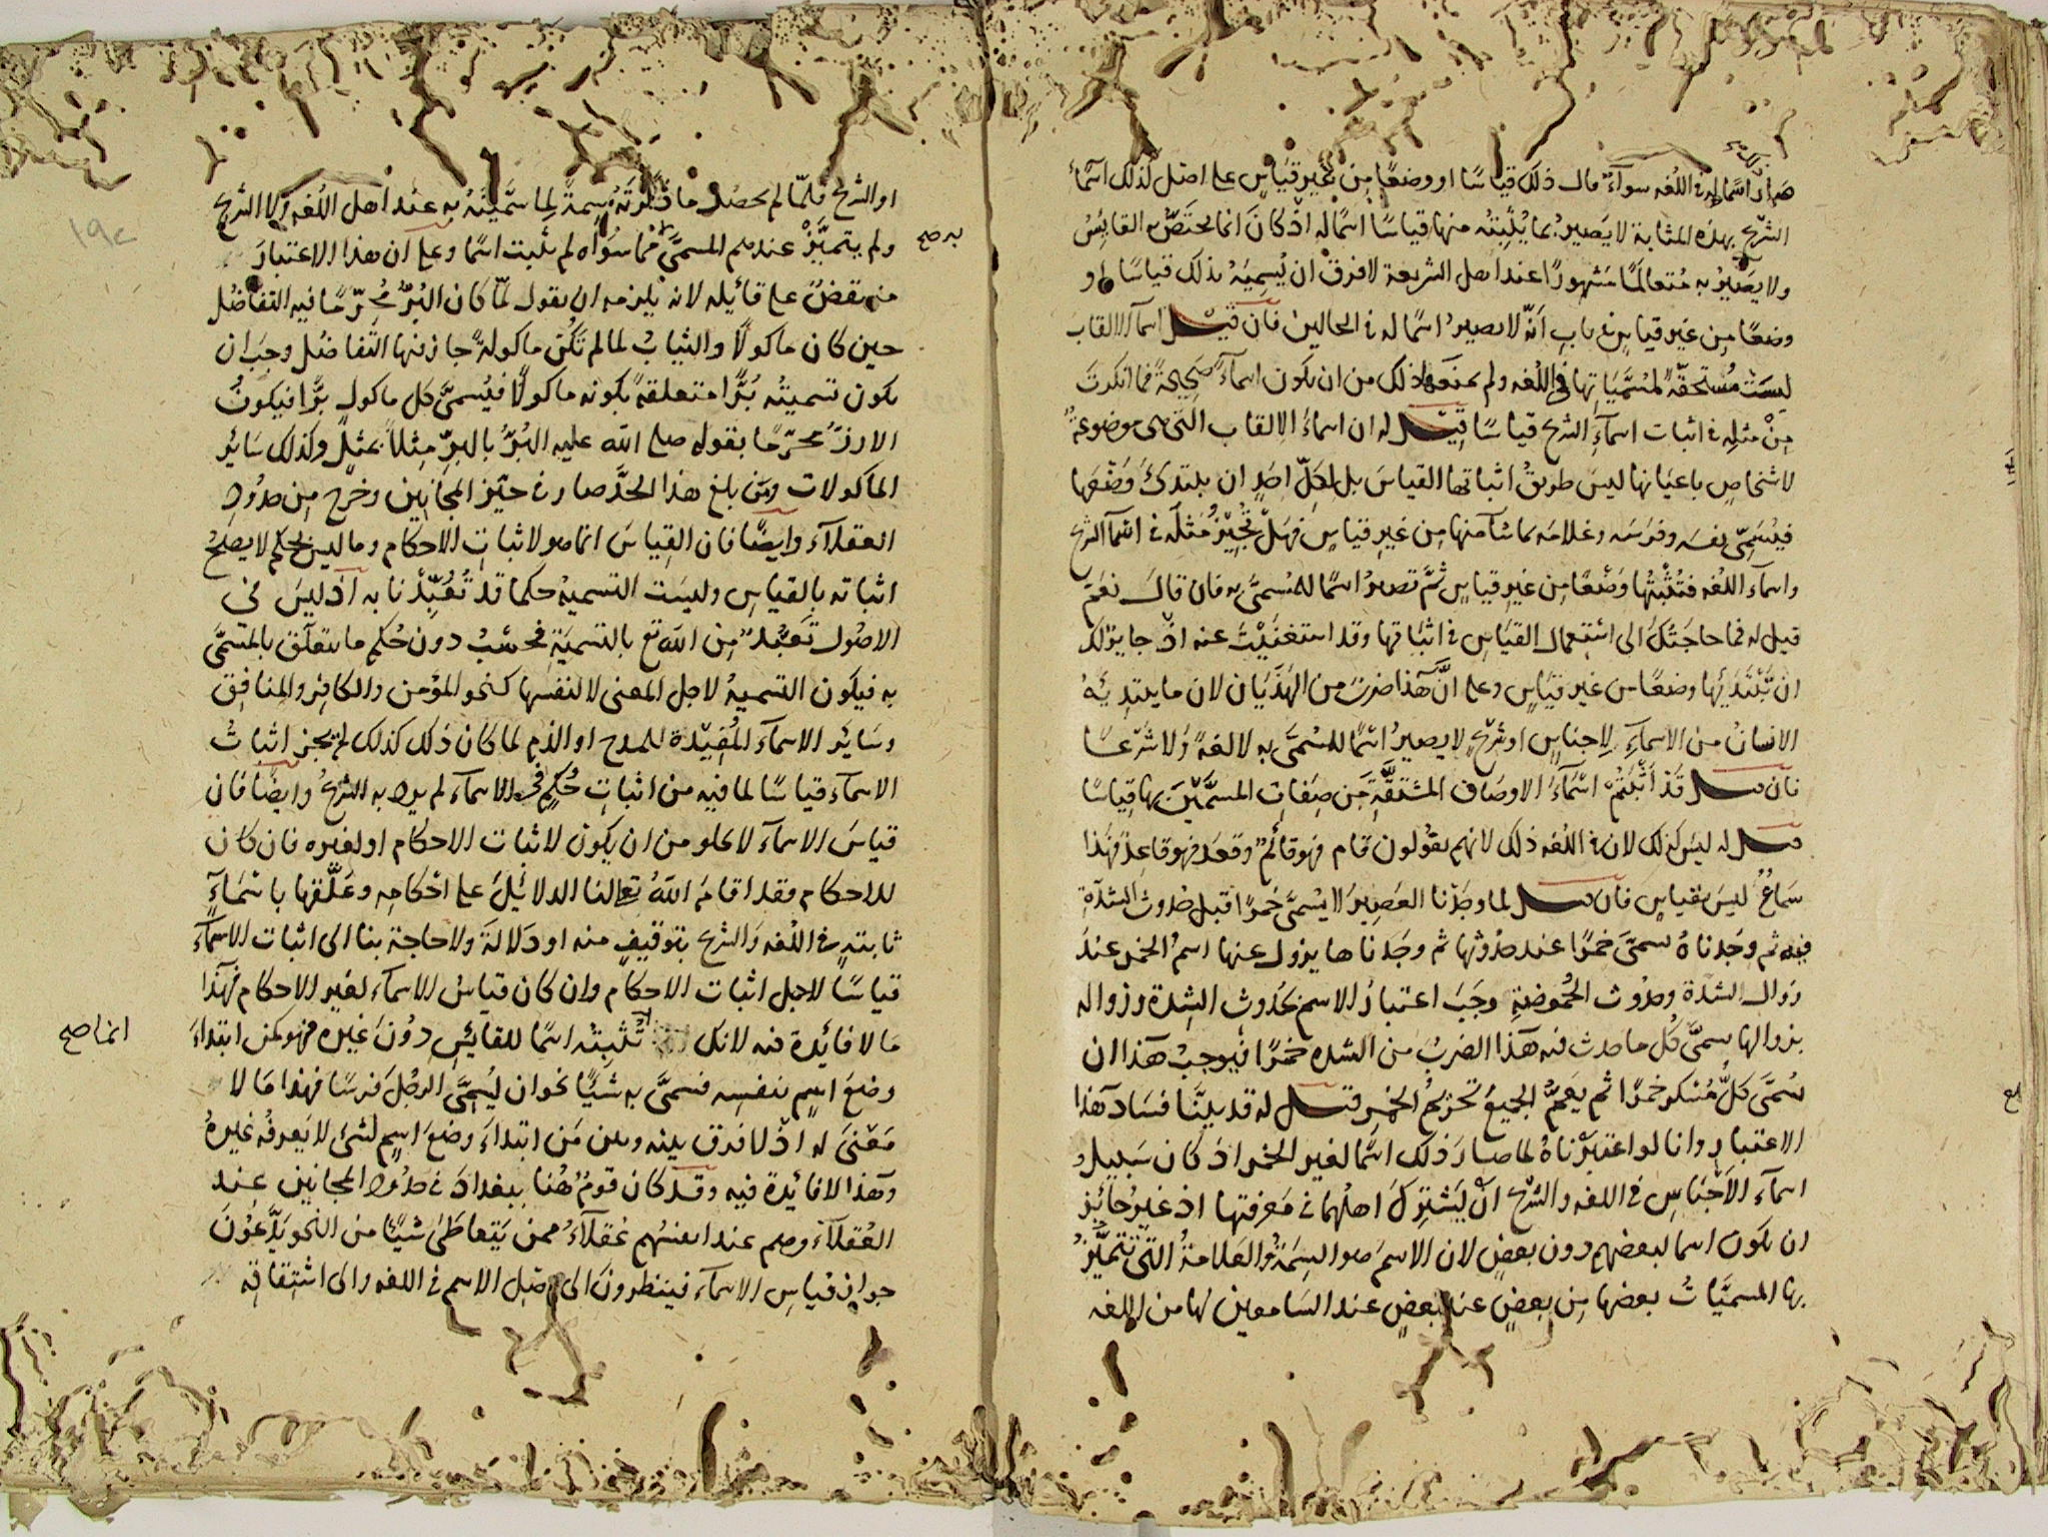 هو اذ اسما له في اللغه سوآء قال ذلك قياسًا او وضعًا من غير قياسٍ على اصل كذلك اسمآء
الشرع بهذه المثابة لا يَصيرُ بما يُثبِتُه منها قياسًا اسمًا له اذ كانَ انما يختصّ به القايِسُ
ولا يَصيرُ به مُتعالَمًا مَشهورًا عند اهل الشريعة لا فرق ان يُسميَهُ بذلك قياسًا او
وضعًا مِن غير قياسٍ في باب انّه لا يصيرُ اسمًا له في الحالين فان قيل اسمآء الالقاب
ليسَت مُستحقّه لمُسَمَّيَاتها في اللغه ولم يمنع ذلك من ان يكون اسمآءً صَحِيحةً فما انكرتَ
مِنْ مثلِه في اثبات اسمآءِ الشرع قياسًا قيل له ان اسمآءَ الالقاب التي هي موضوعةٌ
لاشخاصٍ باعيَانها ليسَ طريقُ اثباتها القياسَ بل لِكلّ احَدٍ ان يبتدئَ وَضْعَها
فيُسَمِّي نفسَه وفرَسَه وغلامَه بما شآء منها مِن غيرِ قياسٍ فهَلْ تُجِيْزُ مثلَه في اسمآء الشرع
واسمآء اللغه فتُثْبِتُها وَضْعًا مِن غيرِ قياسٍ ثُمَّ تصيرُ اسمًا للمُسمَّى به فان قالَ نَعَمْ
قيل له فما حاجَتُكَ الى استِعمال القيَاسِ في اثباتها وقد استغنَيْتَ عنه اذ جايزٌ لك
ان تَبْتَدِئَها وضعًا من غير قيَاسٍ وعلى انَّ هذا ضربٌ من الهَذَيَان لان ما يبتدِئُهُ
الانسانُ من الاسمآءِ لاجناسٍ او شرعٍ لا يصيرُ اسمًا للمُسمَّى به لا لغةً ولا شَرْعًا
فان قيل قَدْ اَثْبَتُّمْ اسْمَآءَ الاوصاف المشتقَّةِ مِن صِفَاتِ المسمَّيْنَ بها قِيَاسًا
قيل له ليسَ كذلك لان في اللغه ذلك لانهم يقُولون قام فهو قائمٌ وقعَد فهو قاعِدٌ فهَذا
سَماعٌ ليسَ بقياسٍ فان قيل لما وجَدْنا العَصِيْرَ لا يُسمَّى خَمرًا قبل حُدوث الشدّةِ
فيه ثم وجَدناهُ سمىَ خمرًا عند حدُوثها ثم وجَدناها يزول عنها اسمُ الخمر عندَ
زوال الشدّة وحدُوث الحُموضةِ وجَبَ اعتبارُ الاسم بحُدوث الشِدة وزواله
بزوالها يسمَّى كُلّ ما حدث فيه هذا الضربُ من الشده خمرًا فيُوجبُ هذا ان
يُسَمَّى كلُّ مُسْكرٍ خَمرًا ثم يَعُمُّ الجميعَ تحريمُ الخمرِ قيل له قد بيّنَّا فسَادَ هذا
الاعتبارِ وانا لو اعتبَرْناهُ لما صَارَ ذلك اسمًا لغير الخمر اذ كان سَبيلُ
اسمآء الاَجنَاسِ في اللغه والشرع انْ يَشترِكَ اهلهُما في مَعْرفتها اذ غيرُ جائزٍ
ان يكون اسما لبعضهم دون بعضٍ لان الاسمَ هو السِمَةُ والعَلامةُ التي تتميَّزُ
بها المسميَّاتُ بعضها مِن بعضٍ عند بعضٍ عند السَامعين لها من اللغه
او الشرع فلمّا لم يحصُل ما ذكرتَهُ سِمةً لِما سَمَّيتَهُ به عند اهل اللغه ولا الشرع
ولم يتميَّزْ عندهم المسمَّى به مما سوَاه لم يثبت اسمًا وعلى ان هذا الاعتبارَ
منتقضٌ على قائيله لانه يلزمه ان يقول لمّا كان البُرُّ مُحرّمًا فيه التفاضُل
حين كان ماكولًا والثيابُ لما لم تَكُن ماكولةً جاز فيها التفاضُل وجَبَ ان
يكون تسميتُه بُرًّا متعلقةً بكونه ماكولًا فيُسمَّى كل ماكولٍ برًّا فيكونُ
الارزّ مُحرّمًا بقوله صلى الله عليه البُرُّ بالبرّ مِثلاً بمثلٍ وكذلك سَائرُ
المأكولات ومَن بلغ هذا الحدَّ صار في حيّز المجَانين وخرج مِن حدُودِ
العقلآء وايضًا فان القِياسَ انما هو لاثباتِ الاحكام وما ليس بحكمٍ لا يصلحُ
اثباته بالقياسِ وليسَت التسميهُ حكما قد تُعُبِّدْنا به اذ ليسَ في
الاصُول تَعَبُّدٌ مِن الله تع بالتسميَةِ فحَسْبُ دون حُكمٍ ما يتعلّق بالمسمَّى
به فيكون التسميهُ لاجل المعنى لا لنفسها كنحو المؤمن والكافر والمنافق
وسَايرُ الاسمآء المُفِيْدة للمدح او الذم لما كان ذلك كذلك لم يجز اثباتُ
الاسمآء قياسًا لما فيه من اثباتِ حُكمٍ في الاسمآء لم يرد به الشرعُ وايضًا فان
قياسَ الاسمآء لا يخلو من ان يكون لاثبات الاحكام او لغيره فان كان
للاحكام فقد اقامَ اللهُ تعالى لنا الدلائيلَ على احْكامِه وعَلَّقها باسْمآءٍ
ثابتهٍ في اللغه والشرع بتوقيفٍ منه او دَلالةَ ولا حاجة بنا الى اثبات الاسمآء
قياسًا لاجل اثبات الاحكام وان كان قياسُ الاسمآء لغير الاحكام فهذا
مَا لا فائدة فيه لانك تُثبِتُه اسمًا للقائِسِ دُوْنَ غيره فهو كمَن ابتداءَ
وضعَ اسمٍ بنفسِه فسمىَّ به شيئًا نحو ان يُسمىِّ الرجُلَ فرسًا فهذا مَا لا
مَعْنى له اذ لا فرق بينه وبين مَن ابتداءَ وضعَ اسمٍ لشىءٍ لا يَعرفُه غيرهُ
وهذا لا فائدة فيه وقد كان قومٌ هُنا ببغدادَ في حدُود المجانينِ عند
العُقلآء وهم عند انفسُهم عُقلآءُ ممن يَتعاطَى شيئًا من النحو يَدَّعُونَ
جواز قياسِ الاسمآء فينظرونَ الى اصل الاسم في اللغه والى اشتِقاقه
به صح
انما صح
١٩٢